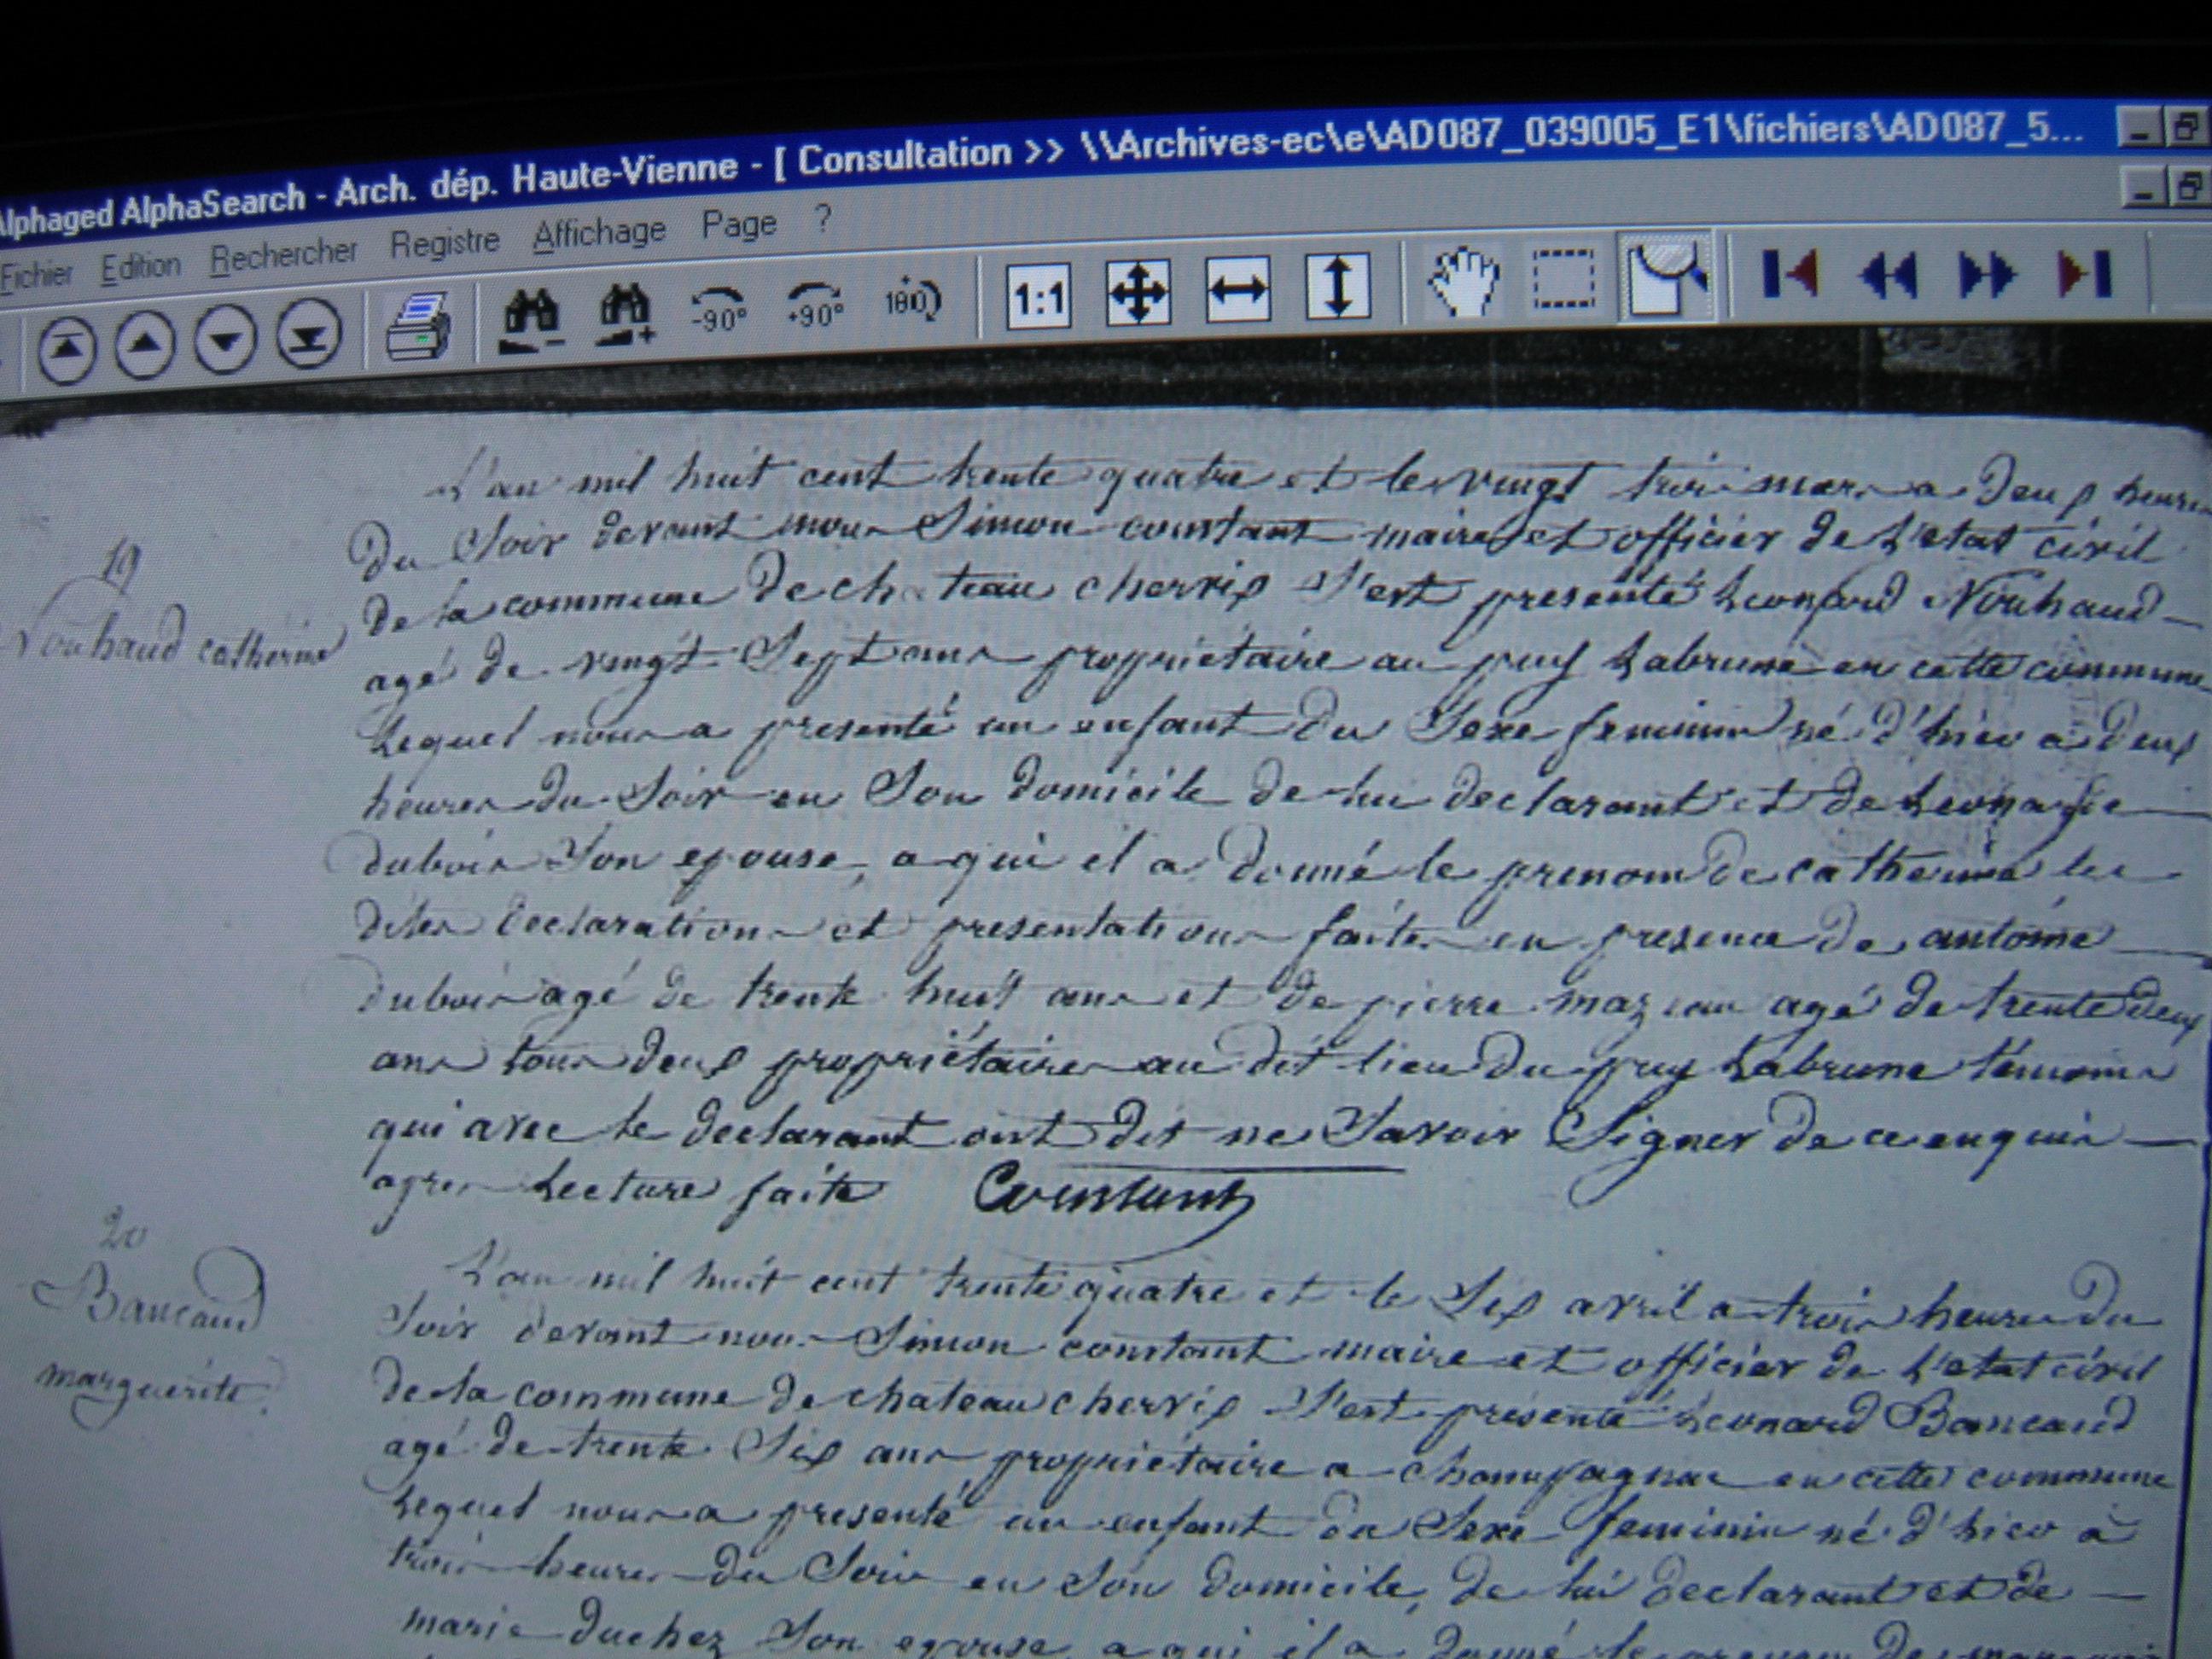 Alphaged AlphaSearch - Arch. dép. Haute-Vienne - [ Consultation >> \\Archives-ec\e\AD087_039005_E1\fichiers\AD087_5...
Fichier Edition Rechercher Registre Affichage Page ?
-90° +90° 180 1:1
L'an mil huit cent trente quatre et le vingt trois mars a deux heures
du Soir devant nous Simon constant maire et officier de L'etat civil
19
de la commune de chateau chervix s'est presenté Leonard Nouhaud
Nouhaud catherine
agé de vingt Sept ans propriétaire au puy Labrune en cette commune
Lequel nous a presenté un enfant du Sexe feminin né d'hier a deux
heures du Soir en Son domicile de lui declarant et de Leonarde
dubois Son epouse, a qui il a donné le prenom de catherine les
dites declaration et presentation faites en presence de antoine
dubois agé de trente huit ans et de pierre mazeau agé de trente deux
ans tous deux propriétaires au dit lieu du puy Labrune témoins
qui avec le declarant ont dit ne Savoir Signer de ce enquis
apres Lecture faite Constant
20
Bancaud
marguerite
L'an mil huit cent trente quatre et le Six avril a trois heures du
Soir devant nous Simon constant maire et officier de L'etat civil
de la commune de chateau chervix s'est presenté Leonard Bancaud
agé de trente Six ans propriétaire a champagnac en cette commune
Lequel nous a presenté un enfant du Sexe feminin né d'hier à
trois heures du Soir en Son domicile, de lui declarant et de
marie duchez Son epouse a qui il a donné le prenom de